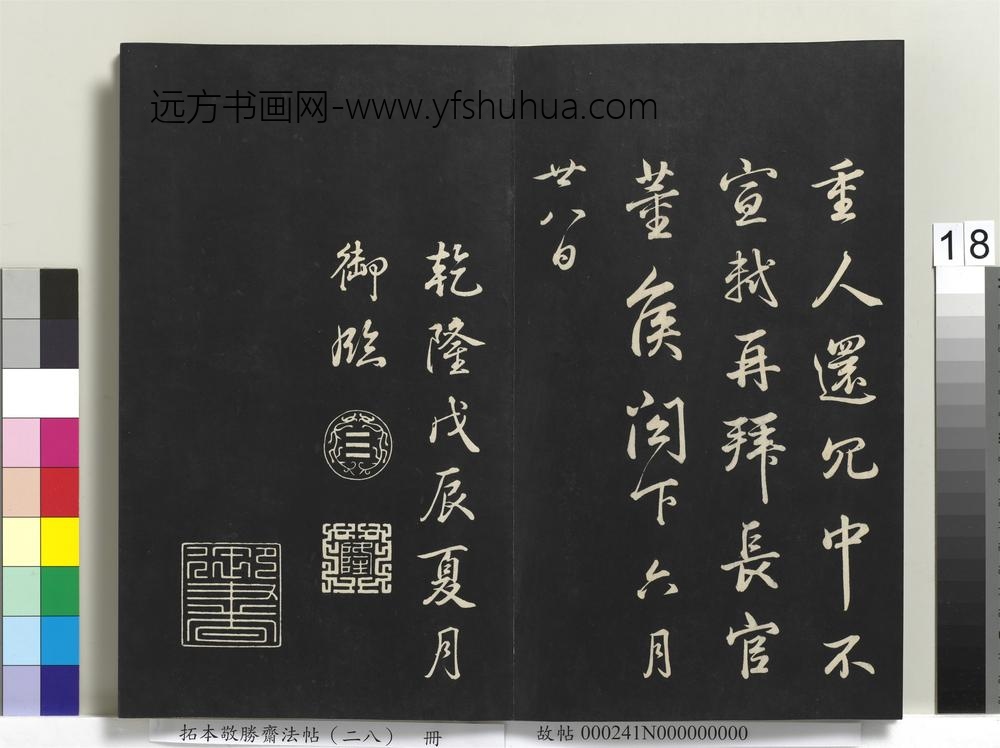 远方书画网-www.yfshuhua.com
重人還冗中不
宣軾再拜長官
董侯閣下六月
廿八日
乾隆戊辰夏月
御臨
乾隆
御書
18
拓本敬勝齋法帖(二八) 冊
故帖 000241N000000000